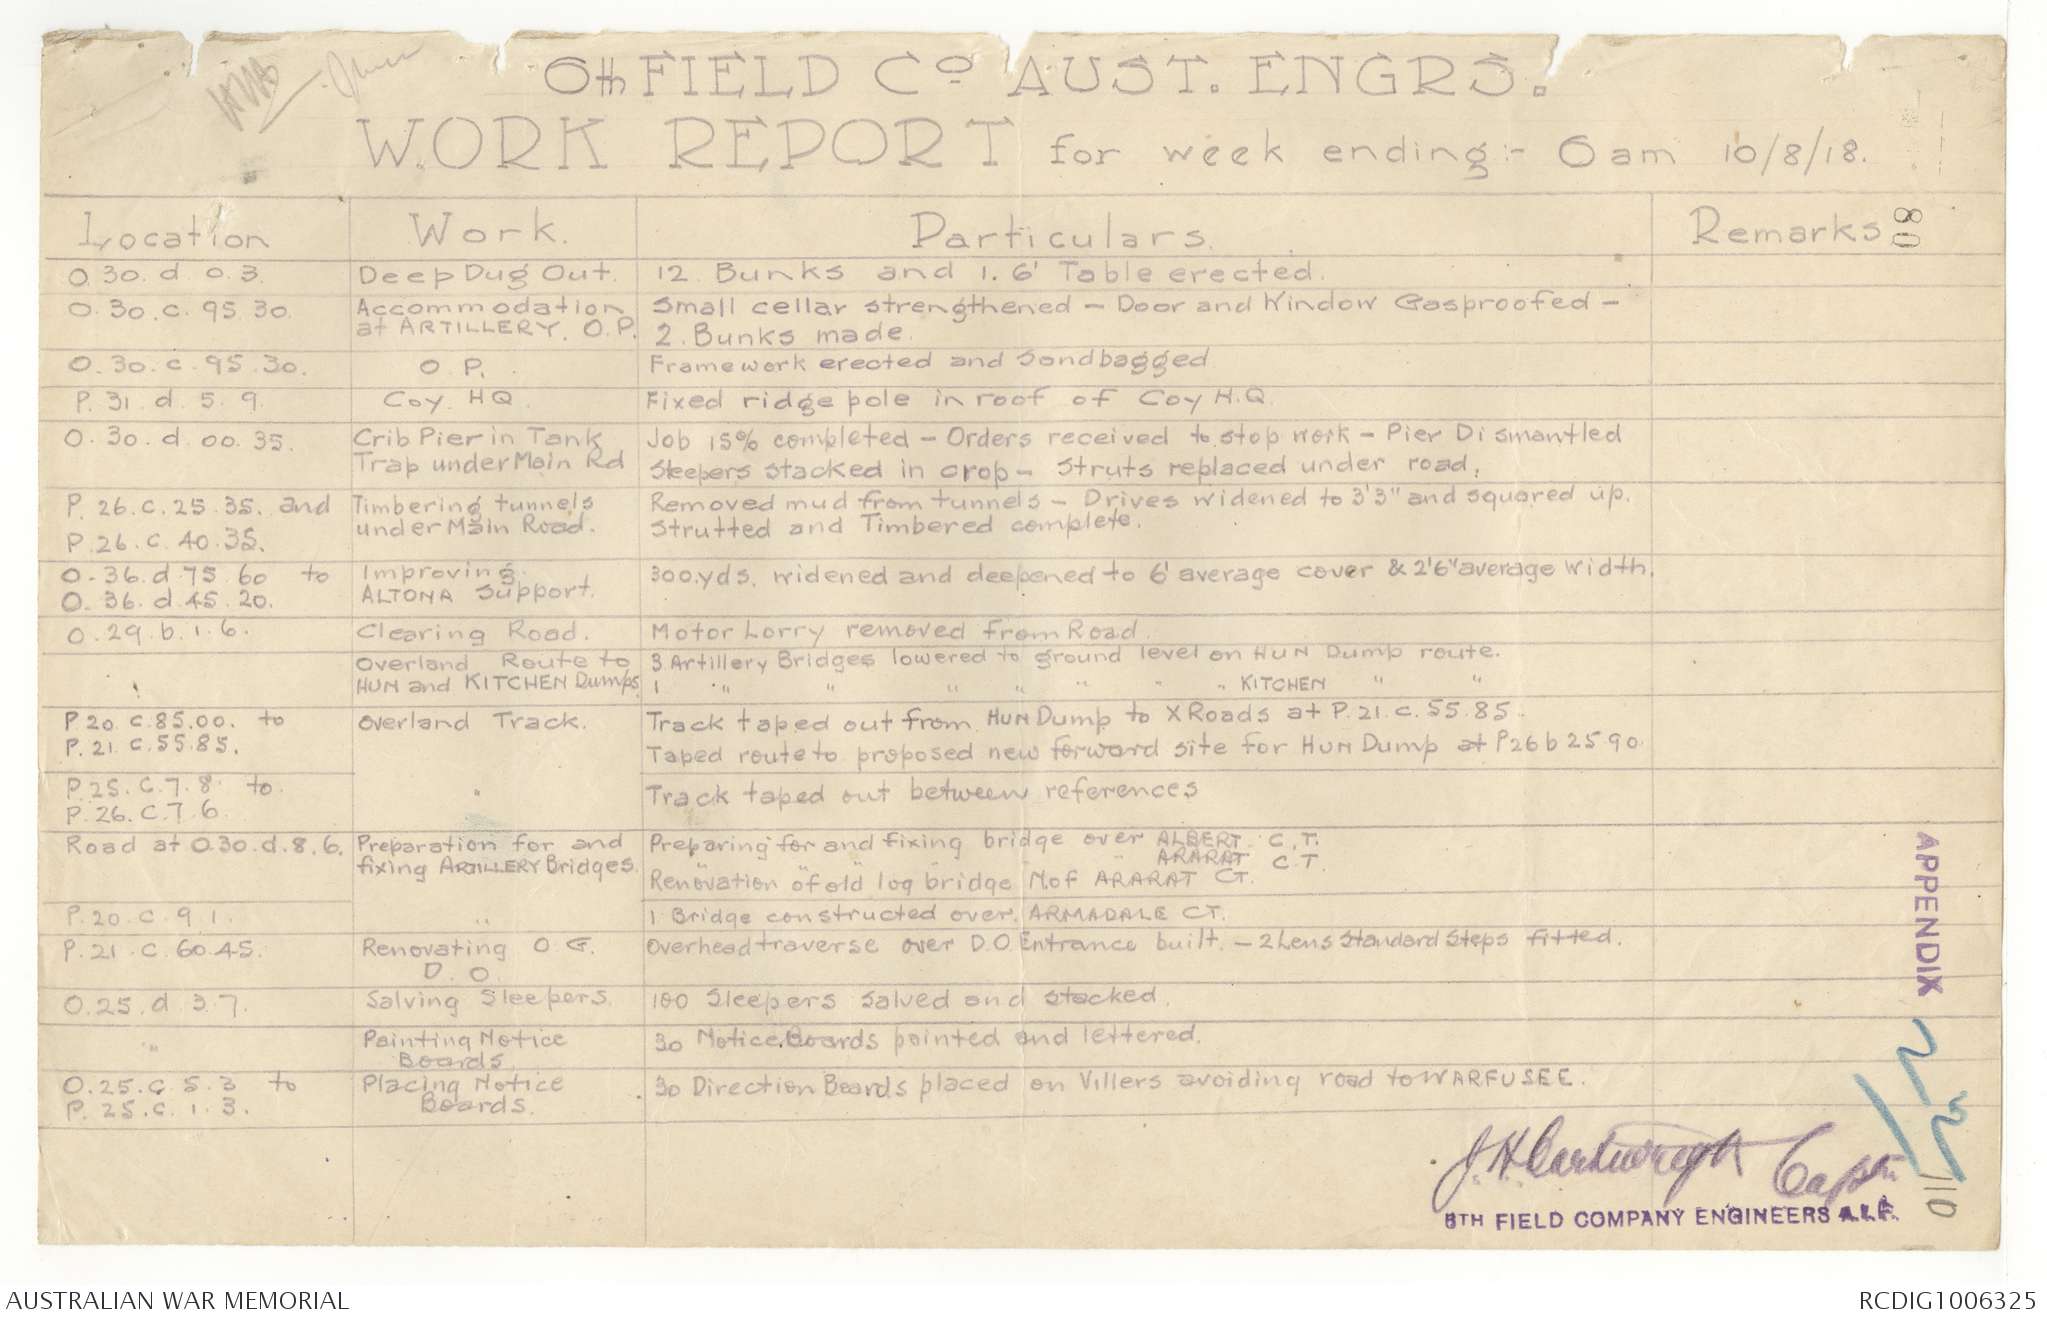 6th FIELD Co AUST. ENGRS.
WORK REPORT for week ending:- 6 am 10/8/18.
Location Work. Particulars. Remarks
O.30. d. 0.3. Deep Dug Out. 12 Bunks and 1. 6' Table erected.
O.30.c. 95.30. Accommodation at ARTILLERY. O.P. Small cellar strengthened - Door and Window Gasproofed -
2. Bunks made.
O.30.c.95.30. O.P. Framework erected and Sandbagged
P. 31. d. 5. 9. Coy. HQ. Fixed ridge pole in roof of Coy H.Q.
O.30.d.00.35. Crib Pier in Tank Job 15% completed - Orders received to stop work - Pier Dismantled
Trap under Main Rd Sleepers stacked in crop - Struts replaced under road.
P. 26.c.25.35. and Timbering tunnels Removed mud from tunnels - Drives widened to 3'3" and squared up.
P.26.c.40.35. under Main Road. Strutted and Timbered complete.
O.36.d.75.60 to Improving 300.yds. widened and deepened to 6' average cover & 2'6" average width.
O.36.d.45.20. ALTONA Support.
O.29.b.1.6. Clearing Road. Motor Lorry removed from Road.
Overland Route to 3 Artillery Bridges lowered to ground level on HUN Dump route.
HUN and KITCHEN Dumps. 1 " " " " " " " KITCHEN " "
P.20.c.85.00. to Overland Track. Track taped out from HUN Dump to X Roads at P.21.c.55.85.
P.21.c.55.85. Taped route to proposed new forward site for HUN Dump at P26b 25 90.
P.25.c.7.8. to " Track taped out between references
P.26.c.7.6.
Road at O.30.d.8.6. Preparation for and Preparing for and fixing bridge over ALBERT C.T.
fixing ARTILLERY Bridges. " " " " " ARARAT C.T.
Renovation of old log bridge N.of ARARAT CT.
P.20.c.9.1. " 1 Bridge constructed over ARMADALE CT.
P.21.c.60.45. Renovating O.G. Overhead traverse over D.O Entrance built. - 2 Lens Standard Steps fitted.
D.O.
O.25.d.3.7. Salving Sleepers. 100 Sleepers salved and stacked.
" Painting Notice 30 Notice Boards painted and lettered.
Boards.
O.25.c.5.3 to Placing Notice 30 Direction Boards placed on Villers avoiding road to WARFUSEE.
P.25.c.1.3. Boards.
J. H. Cartwright Captn
6TH FIELD COMPANY ENGINEERS A.I.F.
APPENDIX
80
110
AUSTRALIAN WAR MEMORIAL RCDIG1006325